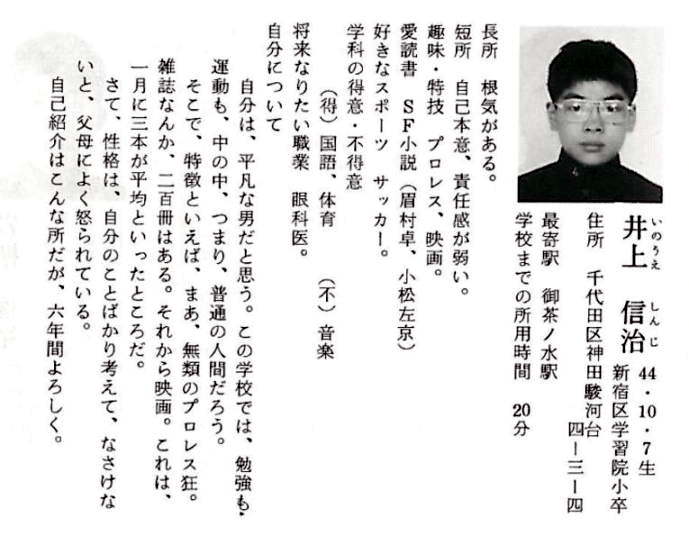 井上 信治
いのうえ しんじ
44・10・7生
新宿区学習院小卒
住所 千代田区神田駿河台
四ー三ー四
最寄駅 御茶ノ水駅
学校までの所用時間 20分
長所 根気がある。
短所 自己本意、責任感が弱い。
趣味・特技 プロレス、映画。
愛読書 SF小説(眉村卓、小松左京)
好きなスポーツ サッカー。
学科の得意・不得意
(得)国語、体育 (不)音楽
将来なりたい職業 眼科医。
自分について
自分は、平凡な男だと思う。この学校では、勉強も・
運動も、中の中、つまり、普通の人間だろう。
そこで、特徴といえば、まあ、無類のプロレス狂。
雑誌なんか、二百冊はある。それから映画。これは、
一月に三本が平均といったところだ。
さて、性格は、自分のことばかり考えて、なさけな
いと、父母によく怒られている。
自己紹介はこんな所だが、六年間よろしく。